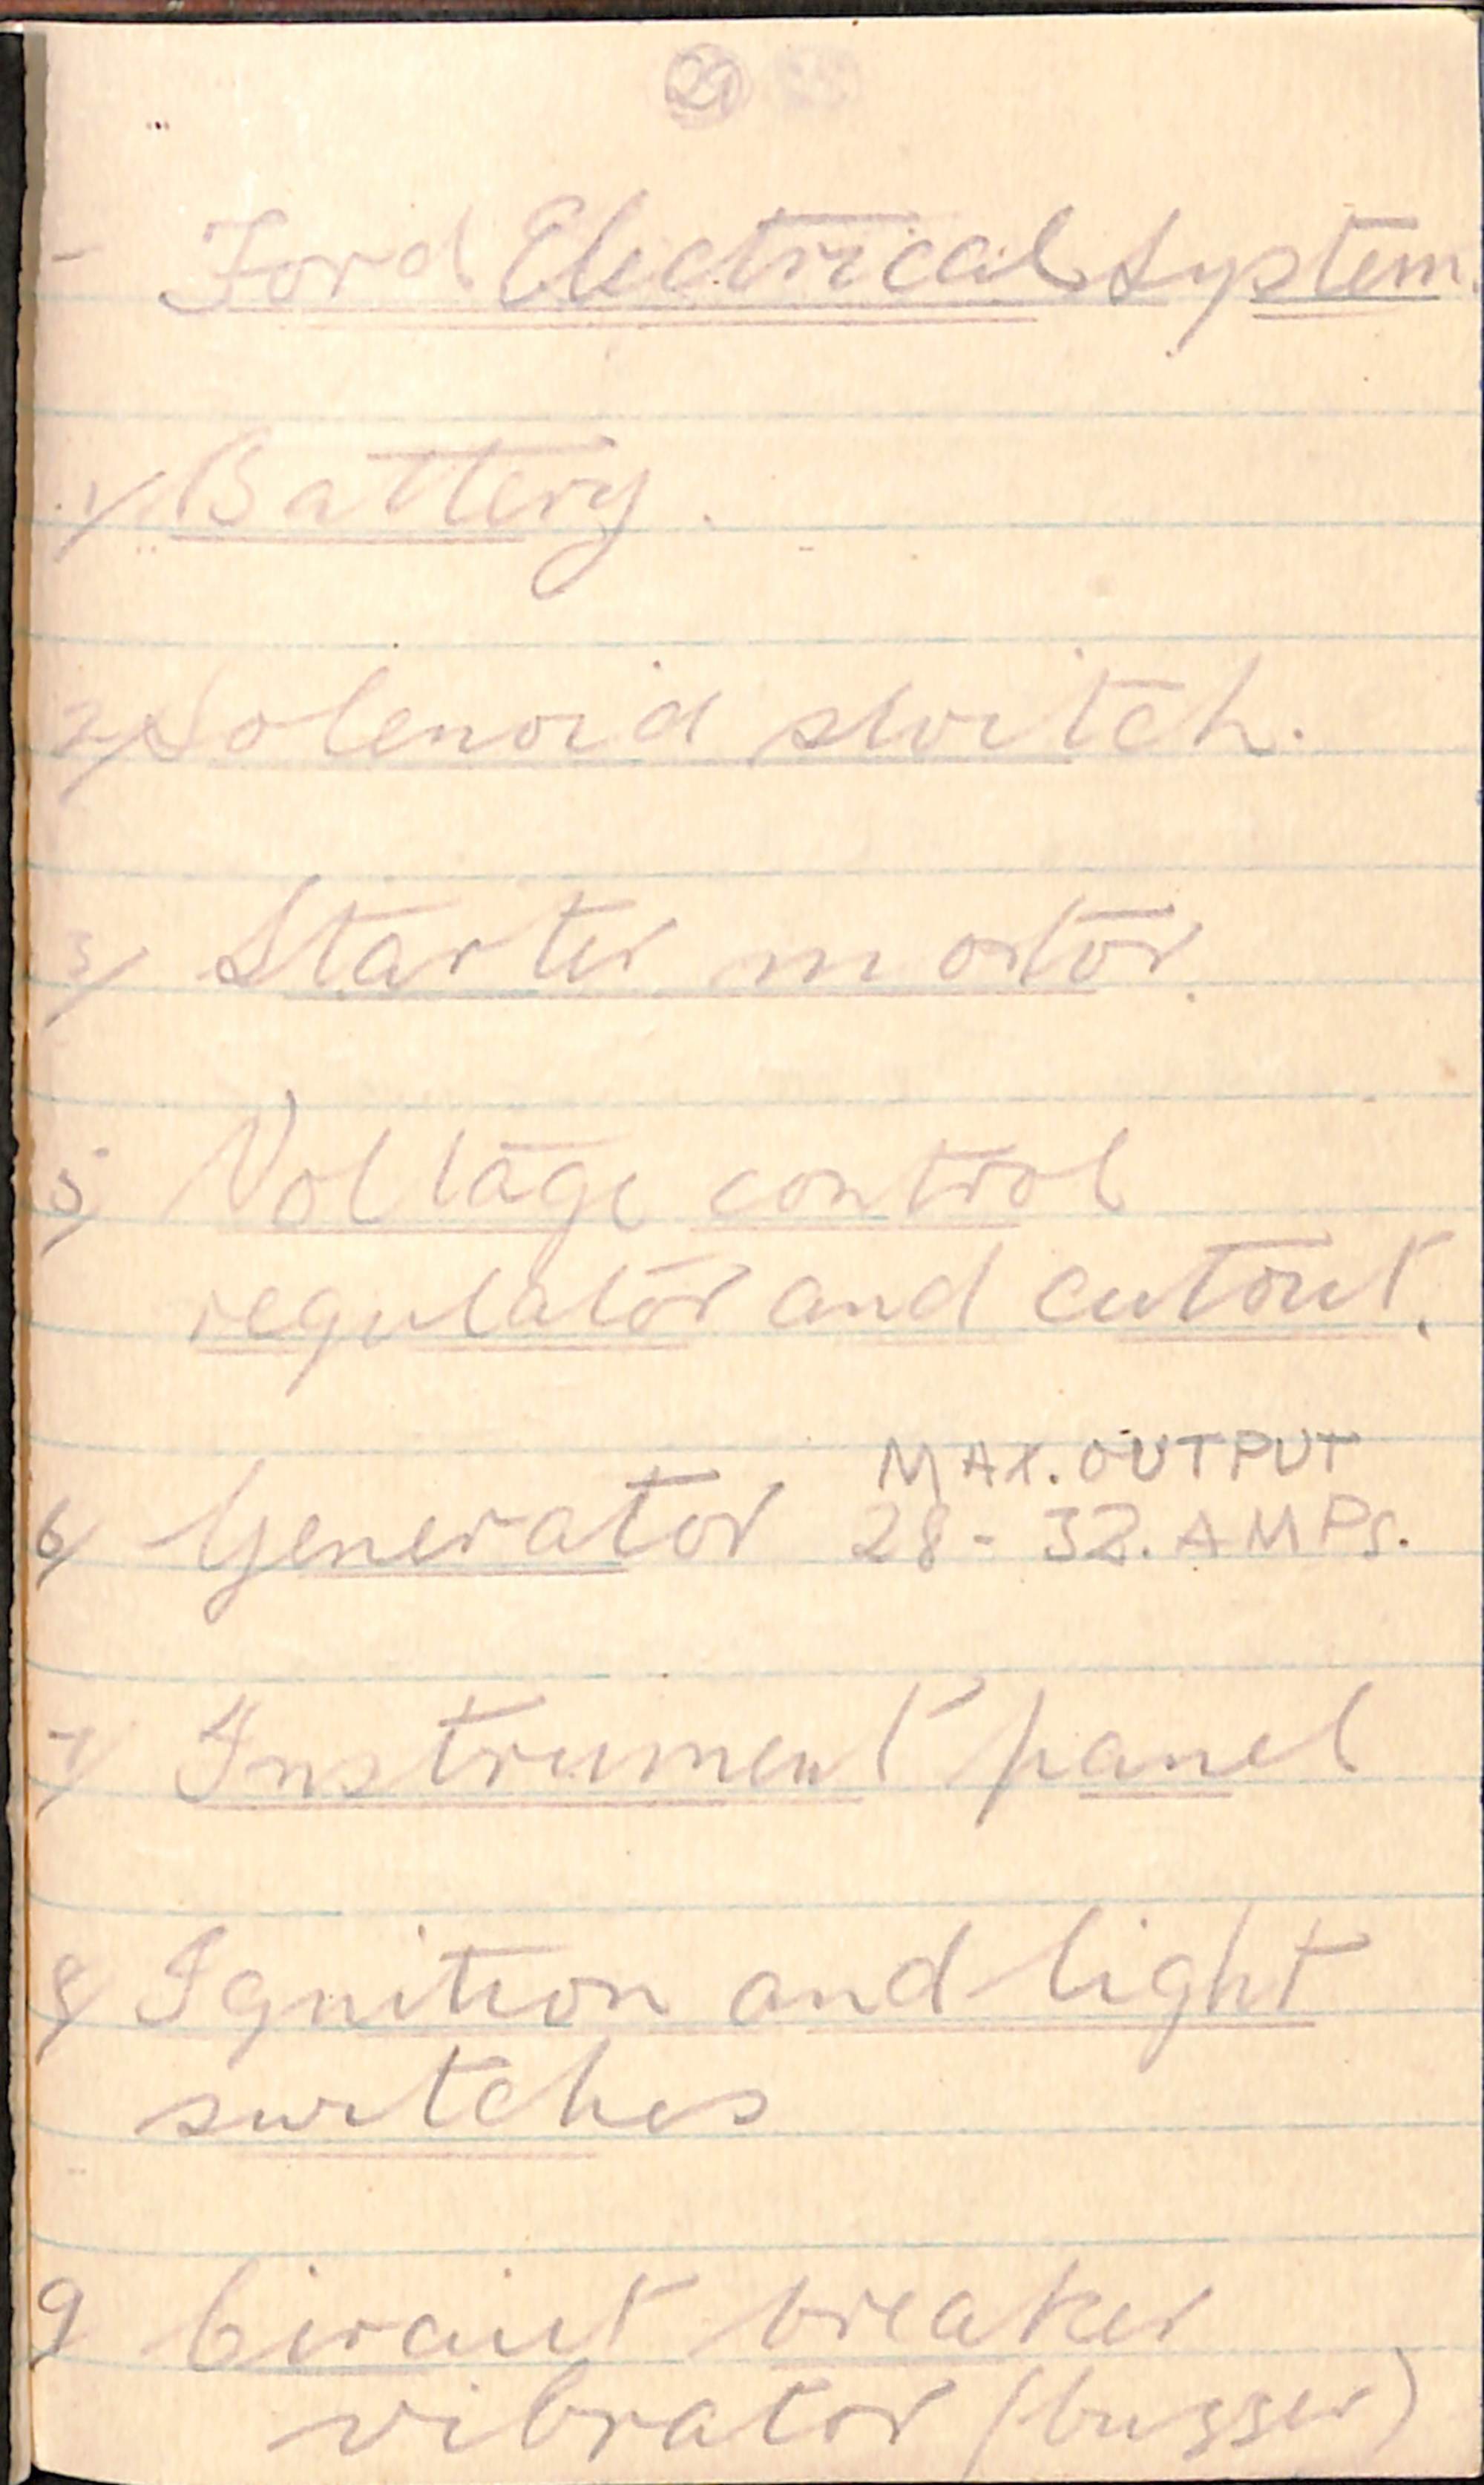 29
- Ford Electrical System.
1/ Battery.
2/ Solenoid switch.
3/ Starter motor.
5/ Voltage control
regulator and cutout.
MAX. OUTPUT
6/ Generator 28 - 32. AMPS.
7/ Instrument panel
8/ Ignition and light
switches
9 Circuit breaker
vibrator (buzzer)